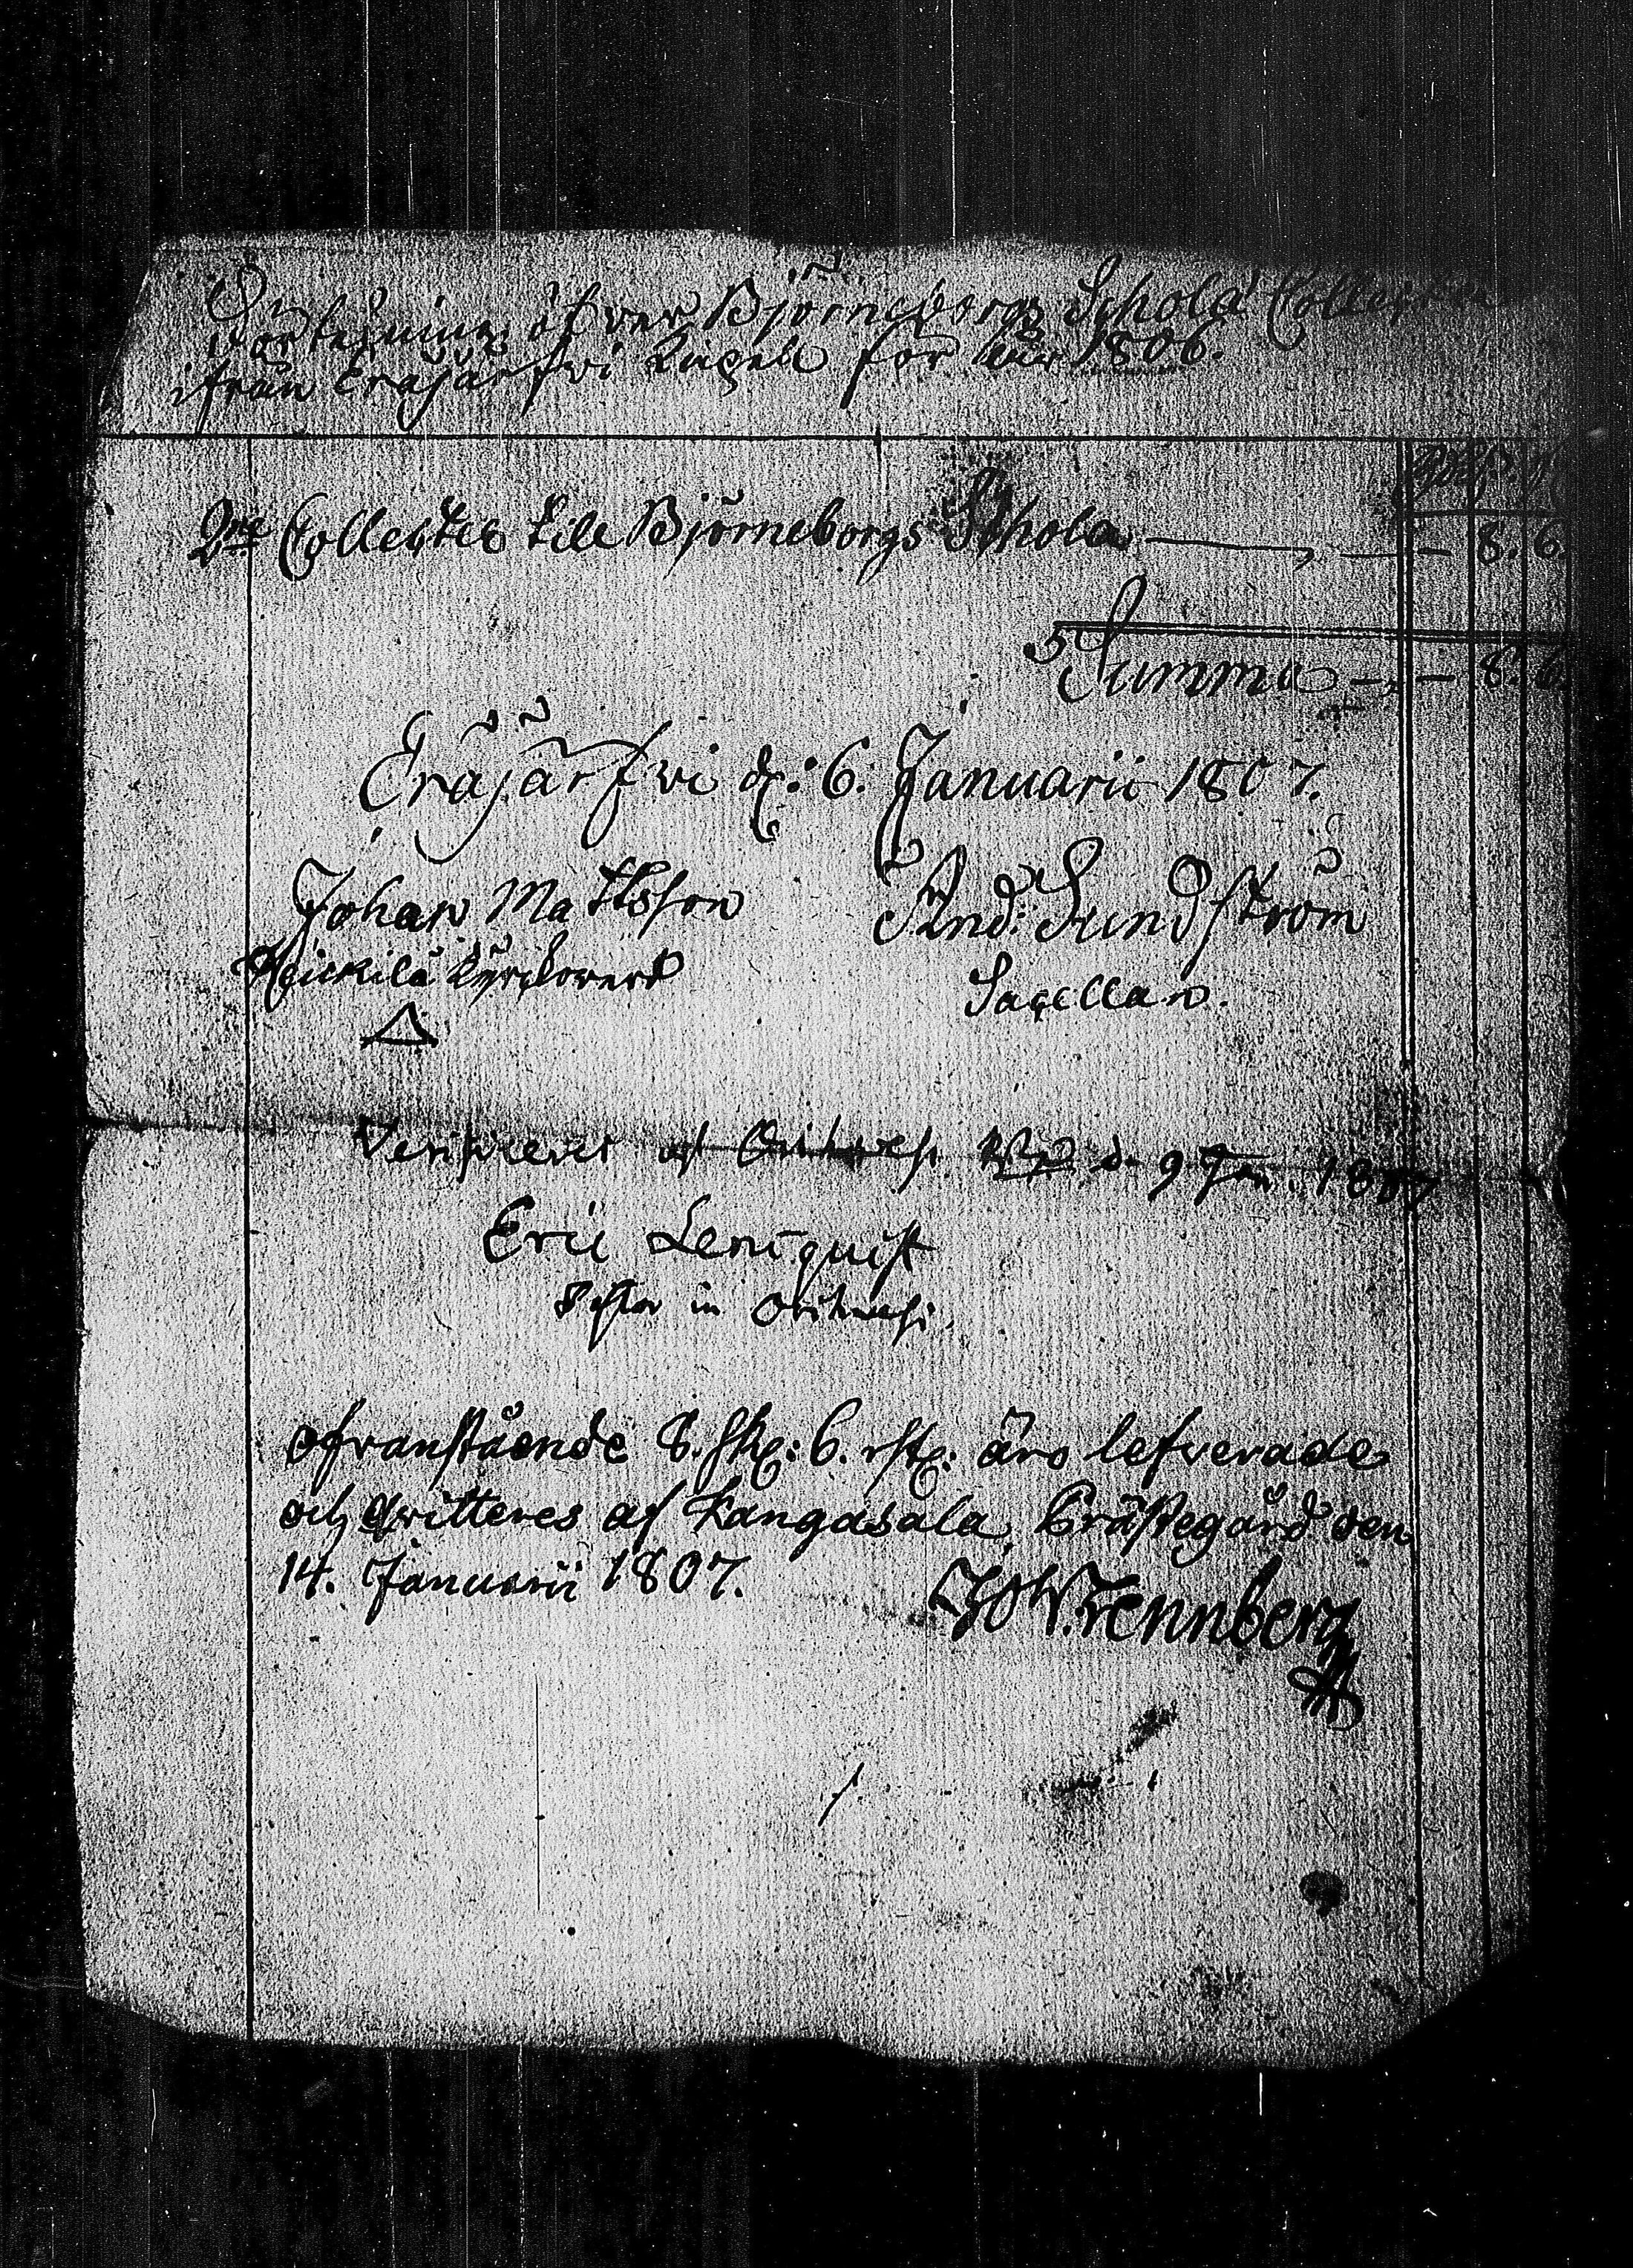 Förtekning öfver Björneborgs Schola Collecter
ifrån Eräjärfwi Capell för år 1806.
2ne Collecter till Björneborgs Schola — 8. 6.
Summa — 8. 6.
Eräjärfwi d: 6. Januarii 1807.
Johan Mattsson And: Sundström
Heickilä Kyrckowerd Sacellan.
Verificeras af Orihvesi d. 9 Jan. 1807
Eric Lencquist
Pastor in Orihvesi.
ofvanstående 8. sk: 6. rst: äro lefverade
och qvitteres af Kangasala Prästegård den
14. Januarii 1807.
Wennberg